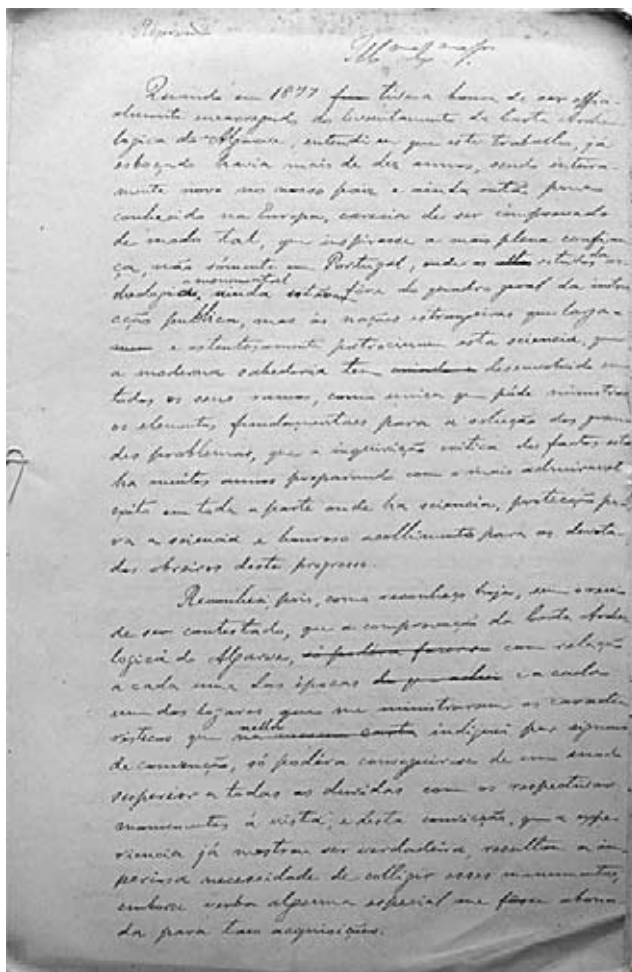 Quando em 1877 tive a honra de ser offici-
almente encarregado do levantamento da Carta Archeo-
logica do Algarve, entendi eu que este trabalho, já
esboçado havia mais de dez annos, sendo inteira-
mente novo no nosso paiz e ainda pouco
conhecido na Europa, carecia de ser comprovado
de modo tal, que inspirasse a mais plena confian-
ça, não sómente em Portugal, onde os estudos da ar-
cheologia monumental ainda estão fóra do quadro geral da instru-
cção publica, mas ás nações estrangeiras que larga
e ostentosamente patrocinam esta sciencia, que
a moderna sabedoria tem desenvolvido em
todos os seus ramos, como unica que póde ministrar
os elementos fundamentaes para a solução dos gran-
des problemas, que a inquirição critica dos factos está
ha muitos annos preparando com o mais admiravel
exito em toda a parte onde ha sciencia, protecção pa-
ra a sciencia e honroso acolhimento para os devota-
dos obreiros deste progresso.
Reconheci pois, como reconheço hoje, sem receio
de ser contestado, que a comprovação da Carta Archeo-
logica do Algarve, só podéra fazer-se com relação
a cada uma das épocas e a cada
um dos logares que me ministraram os caracte-
risticos que nella indiquei por signaes
de convenção, só podéra conseguir-se de um modo
superior a todas as duvidas com os respectivos
monumentos á vista; e desta convicção, que a expe-
riencia já mostrou ser verdadeira, resultou a im-
periosa necessidade de colligir esses monumentos,
embora verba alguma especial me fosse abona-
da para taes acquisições.